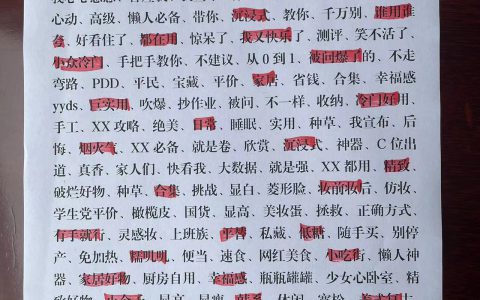 心动、高级、懒人必备、带你、沉浸式、教你、千万别、谁用谁
好看住了、都在用、惊呆了、我又快乐了、测评、笑不活了、
小众冷门、手把手教你、不建议、从 0 到 1、被问爆了的、不走
弯路、PDD、平民、宝藏、平价、家居、省钱、合集、幸福感
yyds、巨实用、吹爆、抄作业、被问、不一样、收纳、冷门好用、
手工、XX 攻略、绝美、日常、睡眠、实用、种草、我宣布、后
悔、烟火气、XX 必备、就是卷、欣赏、沉浸式、神器、C 位出
道、真香、家人们、快看我、大数据、就是强、XX 都用、精致、
破烂好物、种草、合集、挑战、显白、菱形脸、妆前妆后、仿妆、
学生党平价、橄榄皮、国货、显高、美妆蛋、拯救、正确方式、
有手就行、灵感妆、上班族、平替、私藏、低糖、随手买、别停
产、免加热、糯叽叽、便当、速食、网红美食、小吃街、懒人神
器、家居好物、厨房自用、幸福感、瓶瓶罐罐、少女心卧室、精